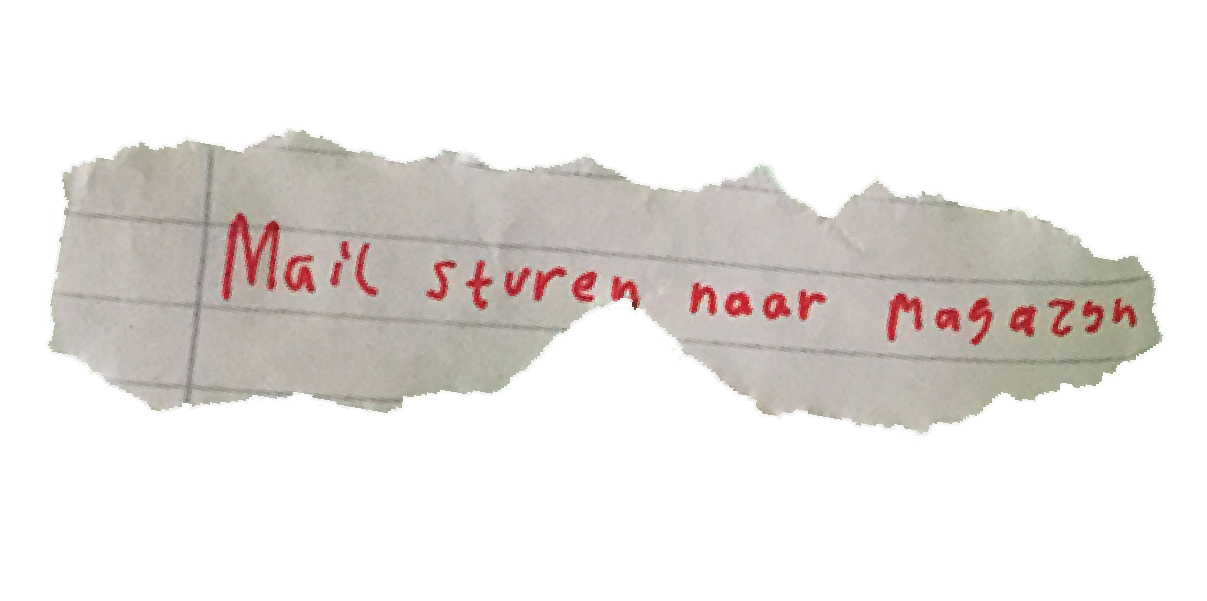 Mail sturen naar Magazijn